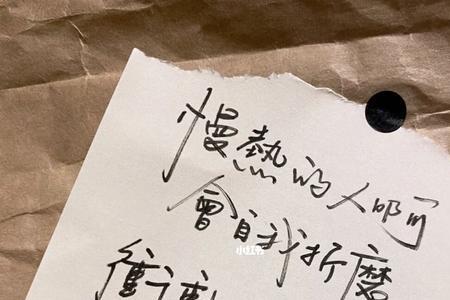 慢熱的人啊
會自我折磨
衝動
小红书